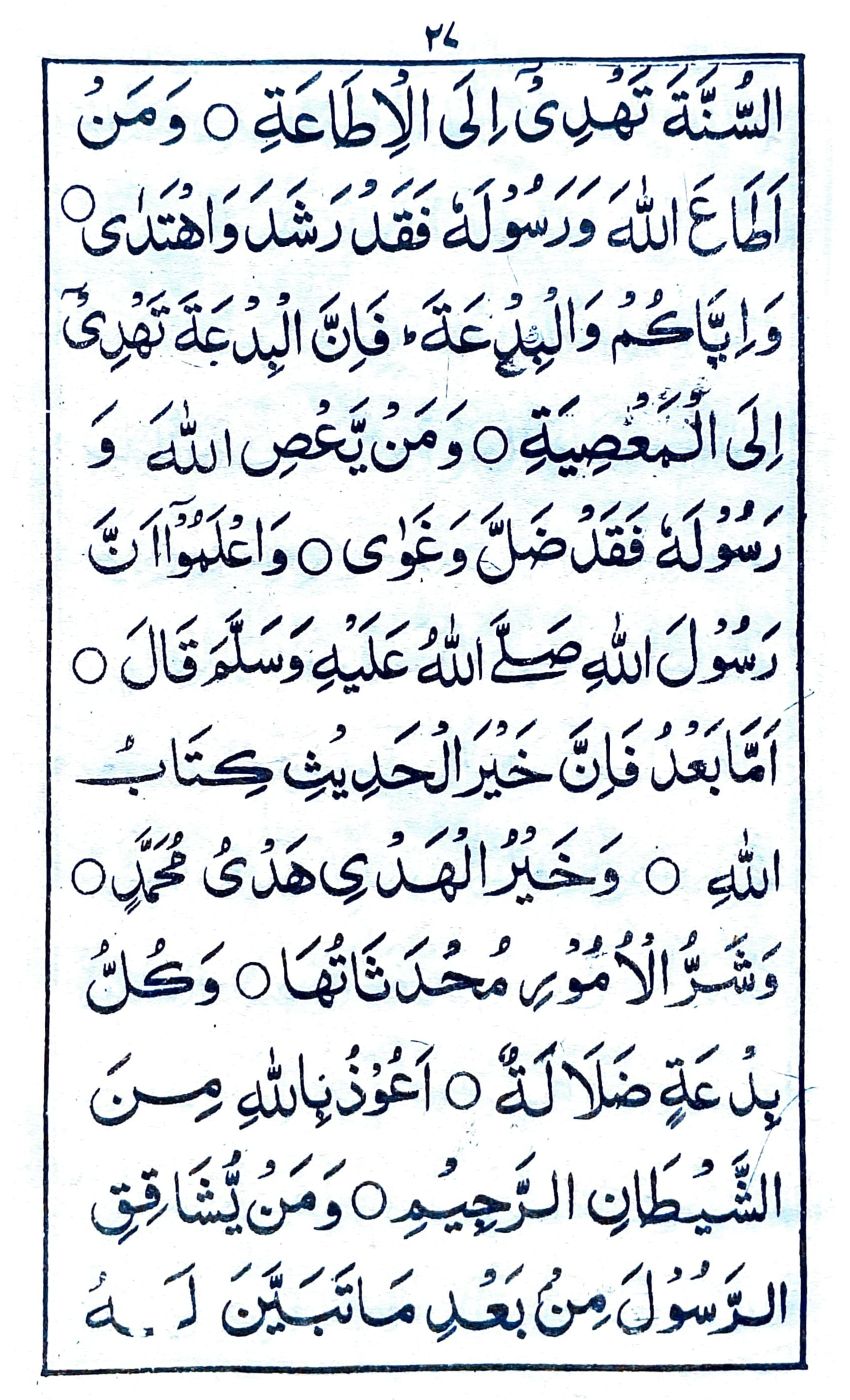 ٢٨
السُّنَّةَ تَهْدِیْٓ اِلَی الْاِطَاعَةِ ○ وَمَنْ
اَطَاعَ اللهَ وَرَسُوْلَهٗ فَقَدْ رَشَدَ وَاهْتَدٰی ○
وَاِیَّاکُمْ وَالْبِدْعَةَ ؕ فَاِنَّ الْبِدْعَةَ تَهْدِیْٓ
اِلَی الْمَعْصِیَةِ ○ وَمَنْ یَّعْصِ اللهَ وَ
رَسُوْلَهٗ فَقَدْ ضَلَّ وَغَوٰی ○ وَاعْلَمُوْٓا اَنَّ
رَسُوْلَ اللهِ صَلَّی اللهُ عَلَیْهِ وَسَلَّمَ قَالَ ○
اَمَّا بَعْدُ فَاِنَّ خَیْرَ الْحَدِیْثِ کِتَابُ
اللهِ ○ وَخَیْرُ الْهَدْیِ هَدْیُ مُحَمَّدٍ ○
وَشَرُّ الْاُمُوْرِ مُحْدَثَاتُهَا ○ وَکُلُّ
بِدْعَةٍ ضَلَالَةٌ ○ اَعُوْذُ بِاللهِ مِنَ
الشَّیْطَانِ الرَّجِیْمِ ○ وَمَنْ یُّشَاقِقِ
الرَّسُوْلَ مِنْۢ بَعْدِ مَا تَبَیَّنَ لَهُ